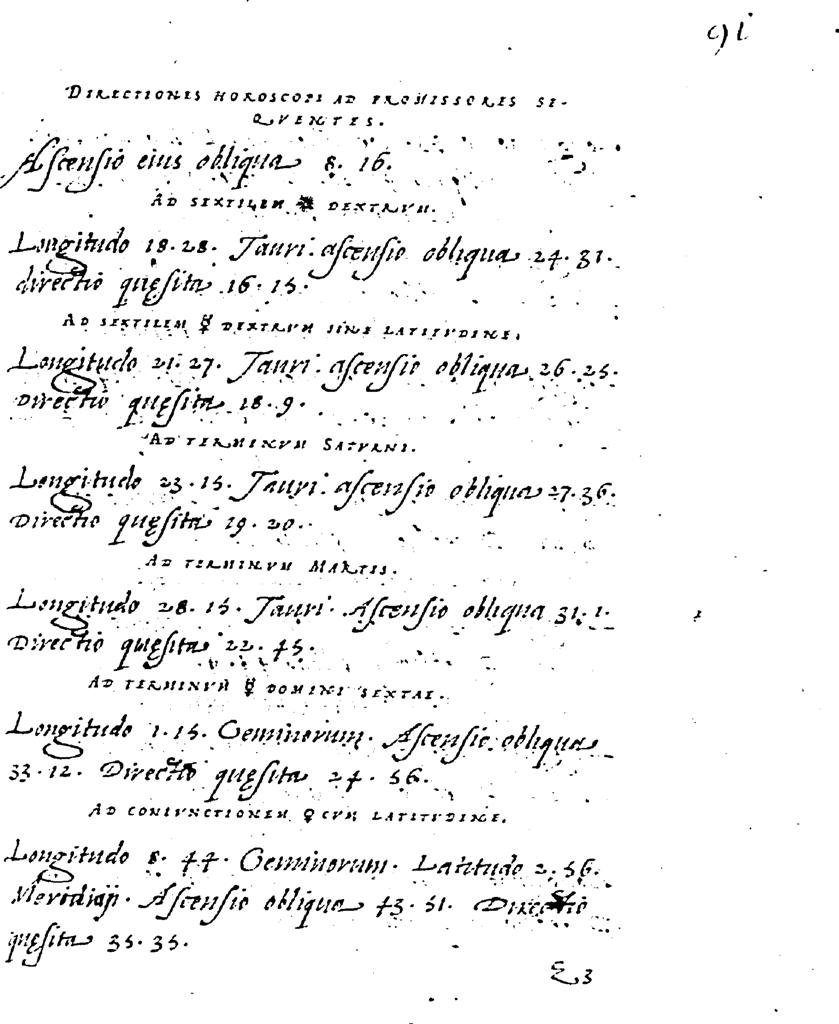 91
DIRECTIONES HOROSCOPI AD PROMISSORES SE-
QVENTES.
Ascensio eius obliqua 8. 16.
AD SEXTILEM DEXTRVM.
Longitudo 18. 28. Tauri. ascensio obliqua 24. 31.
directio quęsita 16. 15.
AD SEXTILEM ☿ DEXTRVM SINE LATITVDINE.
Longitudo 21. 27. Tauri. ascensio obliqua 26. 25.
Directio quęsita 18. 9.
AD TERMINVM SATVRNI.
Longitudo 23. 15. Tauri. ascensio obliqua 27. 36.
Directio quęsita 19. 20.
AD TERMINVM MARTIS.
Longitudo 28. 15. Tauri. Ascensio obliqua 31. 1.
Directio quęsita 22. 45.
AD TERMINVM ☿ DOMINI SEXTAE.
Longitudo 1. 15. Geminorum. Ascensio obliqua
33. 12. Directio quęsita 24. 56.
AD CONIVNCTIONEM ♀ CVM LATITVDINE.
Longitudo 8. 44. Geminorum. Latitudo 2. 56.
Meridian. Ascensio obliqua 43. 51. Directio
quęsita 35. 35.
E 3